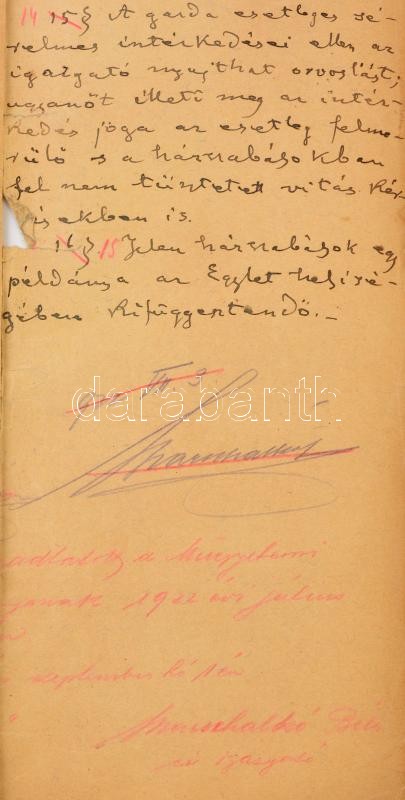 14 15 § A garda esetleges sé-
relmes intézkedései ellen az
igazgató nyujthat orvoslást;
ugyanőt illeti meg az intéz-
kedés joga az esetleg felme-
rülő s a házszabásokban
fel nem tüntetett vitás kér-
désekben is.
16 § 15 Jelen házszabások egy
példánya az Egylet helisé-
gében kifüggesztendő.-
VII. 3
darabanth
adtatott a Műegyetemi
1922 évi július
szeptember hó 1én
Béla
igazgató